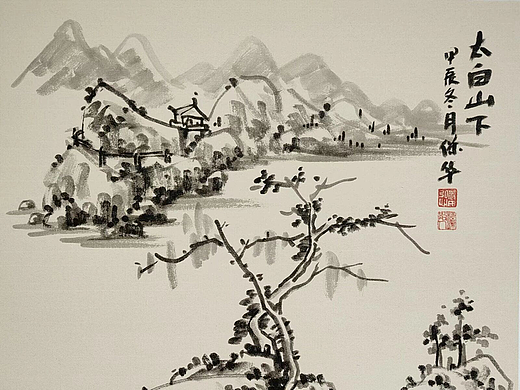 太白山下
甲辰冬月保华